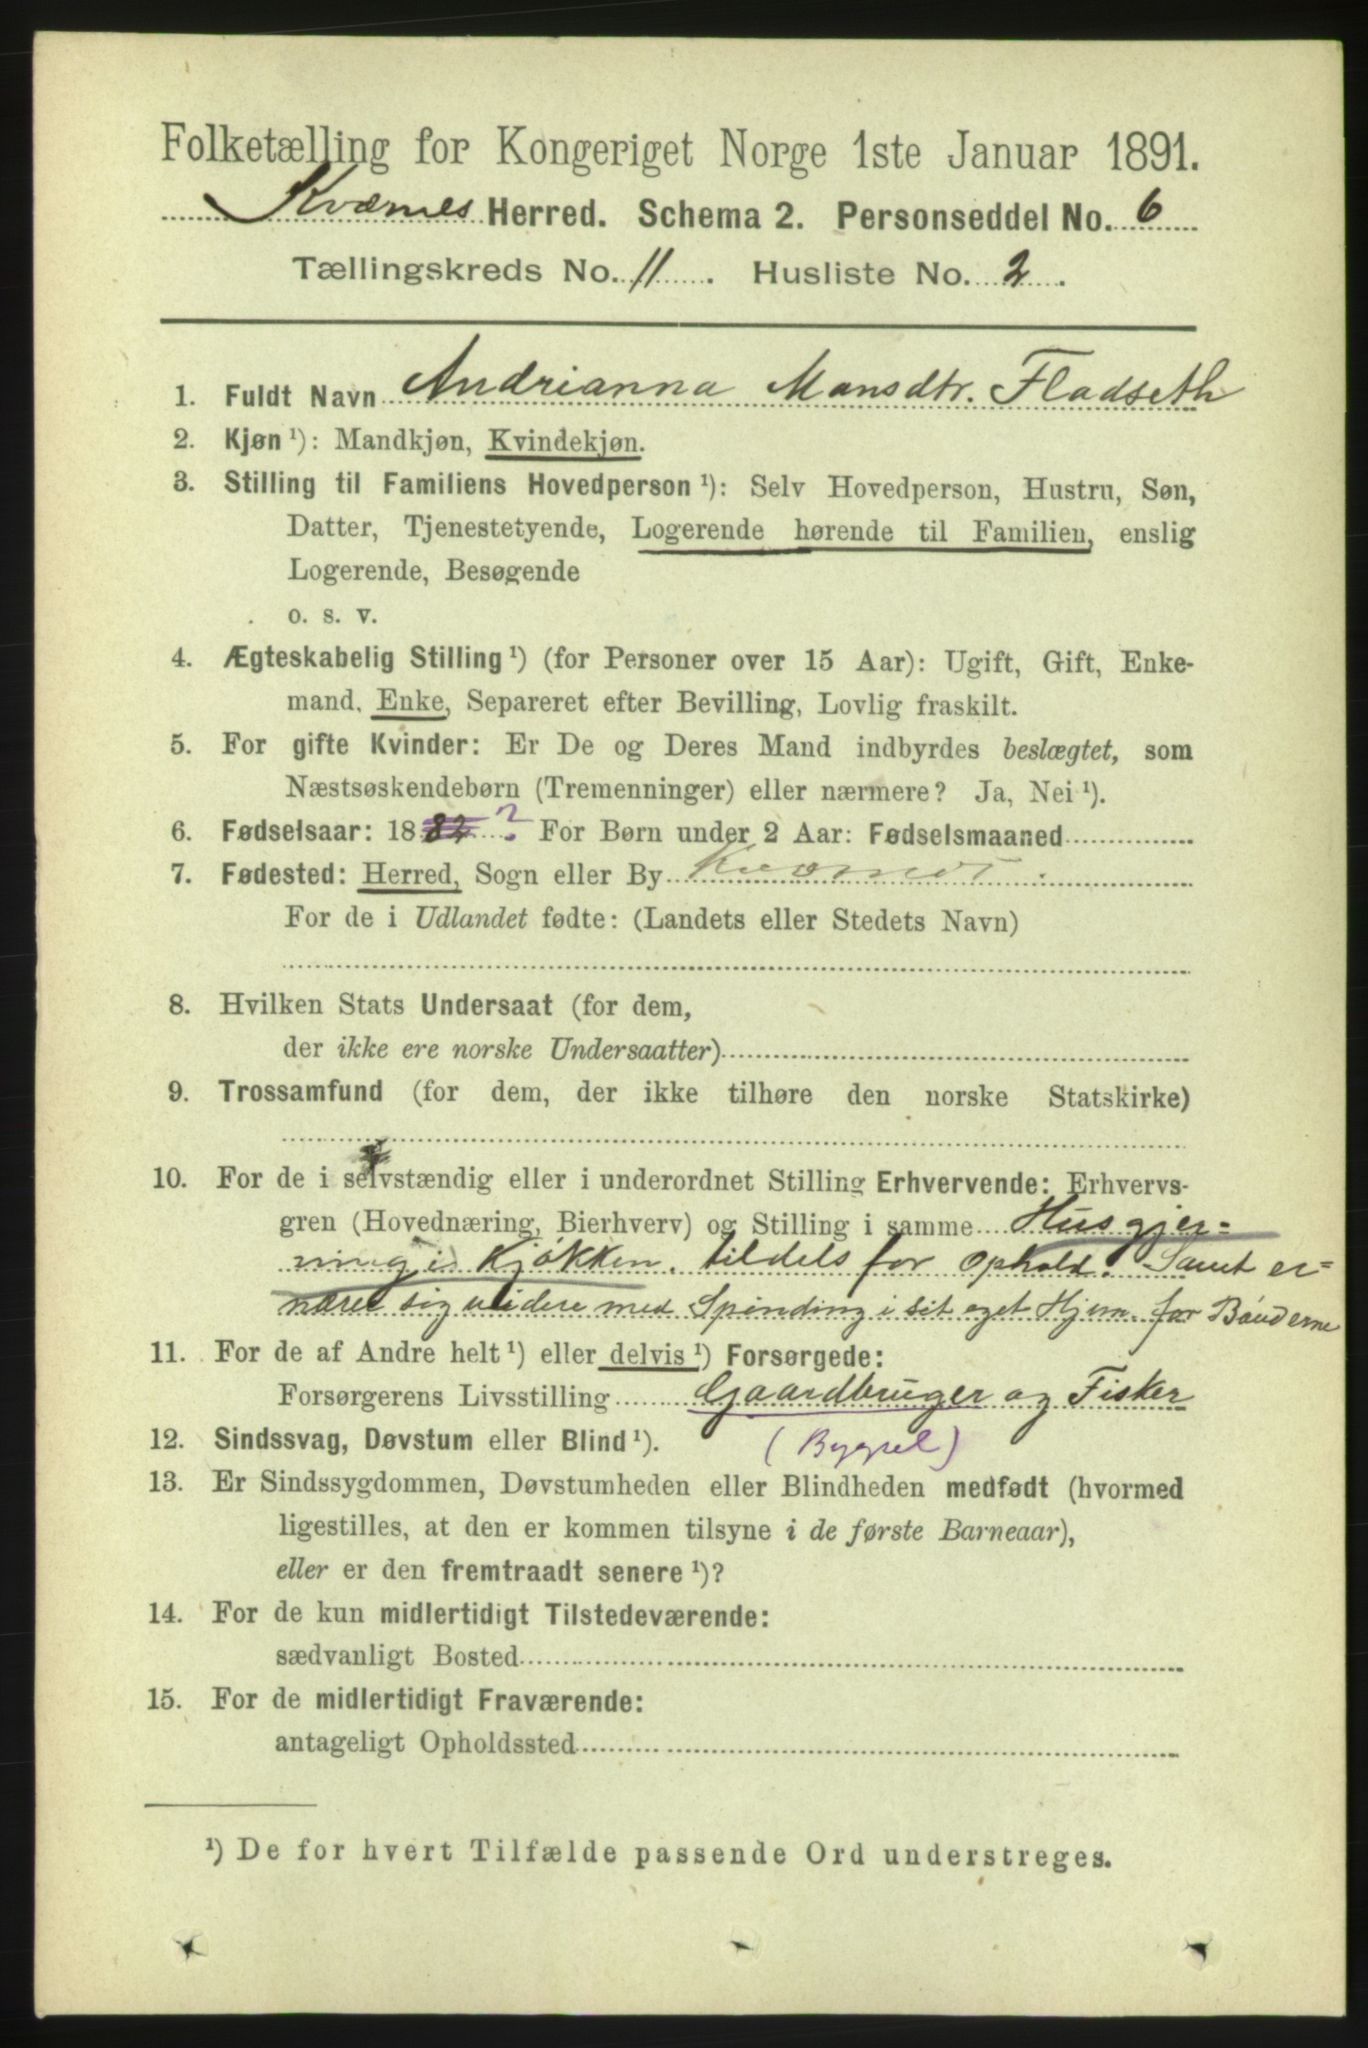 Folketælling for Kongeriget Norge 1ste Januar 1891.
Kværnes Herred. Schema 2. Personseddel No. 6
Tællingskreds No. 11. Husliste No. 2.
1. Fuldt Navn Andrianna Monsdtr. Fladseth
2. Kjøn ¹): Mandkjøn, Kvindekjøn.
3. Stilling til Familiens Hovedperson ¹): Selv Hovedperson, Hustru, Søn,
Datter, Tjenestetyende, Logerende hørende til Familien, enslig
Logerende, Besøgende
o. s. v.
4. Ægteskabelig Stilling ¹) (for Personer over 15 Aar): Ugift, Gift, Enke-
mand, Enke, Separeret efter Bevilling, Lovlig fraskilt.
5. For gifte Kvinder: Er De og Deres Mand indbyrdes beslægtet, som
Næstsøskendebørn (Tremenninger) eller nærmere? Ja, Nei ¹).
6. Fødselsaar: 1882 ? For Børn under 2 Aar: Fødselsmaaned
7. Fødested: Herred, Sogn eller By Kværnes
For de i Udlandet fødte: (Landets eller Stedets Navn)
8. Hvilken Stats Undersaat (for dem,
der ikke ere norske Undersaatter)
9. Trossamfund (for dem, der ikke tilhøre den norske Statskirke)
10. For de i selvstændig eller i underordnet Stilling Erhvervende: Erhvervs-
gren (Hovednæring, Bierhverv) og Stilling i samme Husgjer=
ning i Kjøkken. tildels for ophold. Samt er=
nærer sig videre med Spinding i sit eget Hjem. for Bønderne
11. For de af Andre helt ¹) eller delvis ¹) Forsørgede:
Forsørgerens Livsstilling Gaardbruger og Fisker
(Bygsel)
12. Sindssvag, Døvstum eller Blind ¹).
13. Er Sindssygdommen, Døvstumheden eller Blindheden medfødt (hvormed
ligestilles, at den er kommen tilsyne i de første Barneaar),
eller er den fremtraadt senere ¹)?
14. For de kun midlertidigt Tilstedeværende:
sædvanligt Bosted
15. For de midlertidigt Fraværende:
antageligt Opholdssted
¹) De for hvert Tilfælde passende Ord understreges.